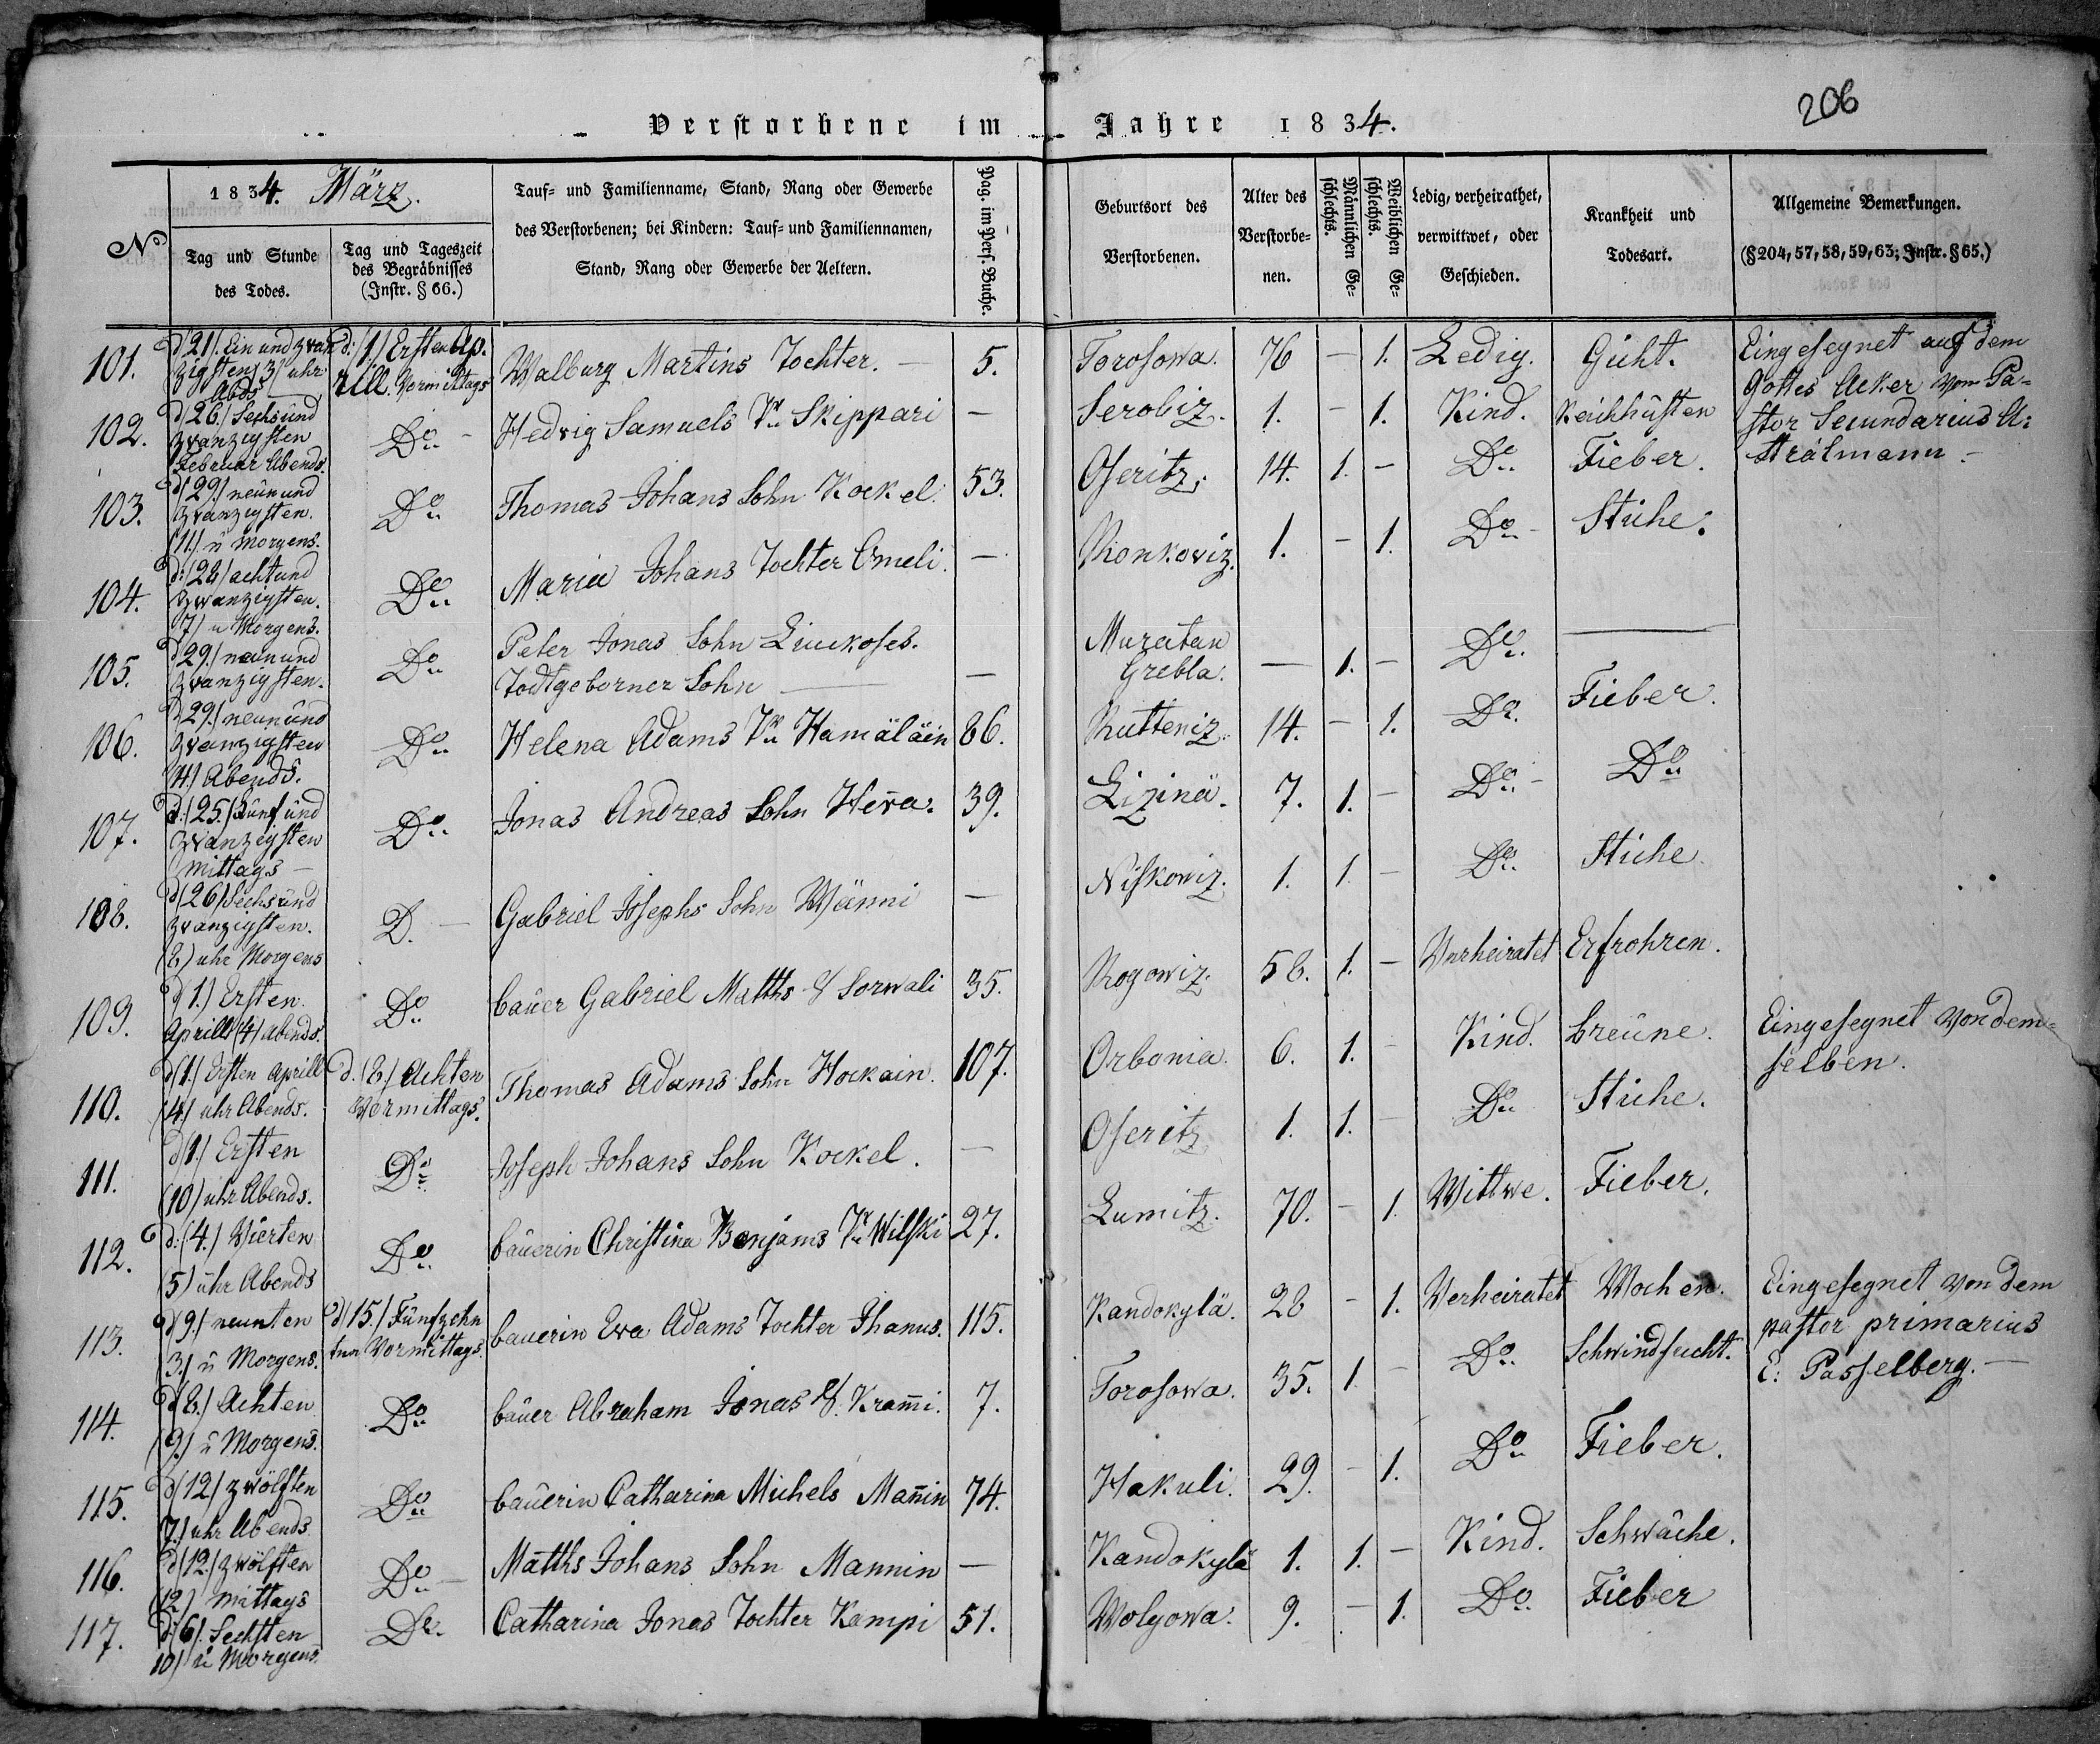 206
Verstorbene im Jahre 1834.
No
1834. März.
Tag und Stunde des Todes.
Tag und Tageszeit des Begräbnisses (Instr. § 66.)
Tauf- und Familienname, Stand, Rang oder Gewerbe
des Verstorbenen; bei Kindern: Tauf- und Familiennamen,
Stand, Rang oder Gewerbe der Aeltern.
Pag. im Pers. Buche.
Geburtsort des Verstorbenen.
Alter des Verstorbenen.
Männlichen Geschlechts.
Weiblichen Geschlechts.
Ledig, verheirathet, verwittwet, oder Geschieden.
Krankheit und Todesart.
Allgemeine Bemerkungen.
(§ 204, 57, 58, 59, 63; Instr. § 65.)
101. d(21). Ein und zwanzigsten 3) uhr Abds d: (1.) Ersten Aprill. Vormittags Walburg Martins Tochter. — 5. Torosowa. 76 — 1. Ledig. Gicht. Eingesegnet auf dem
Gottes Acker vom Pa-
stor Secundarius A:
Stråhmann. —
102. d(26.) Sechsünd zwanzigsten Februar Abends. Do — Hedwig Samuels Tr Skippari — Serobiz. 1. — 1. Kind. Keichhüsten
103. d(29.) neün und zwanzigsten. (11.) ü Morgens. Do Thomas Johans Sohn Kockel. 53. Oseritz. 14. 1. — Do Fieber.
104. d: (28.) acht und zwanzigsten. (7) u Morgens. Do Maria Johans Tochter Omeli. — Ronkowiz. 1. — 1. Do — Stiche.
105. d(29.) neun und zwanzigsten. Do Peter Jonas Sohn Liuckoses.
Todtgeborner Sohn — — Muratan
Grebla. — 1. — Do. —
106. d(29.) neunünd zwanzigsten (4) Abends. Do Helena Adams Tr Hamäläin 86. Rutteniz. 14. — 1. Do. Fieber.
107. d: (25.) Fünfünd zwanzigsten Mittags — Do Jonas Andreas Sohn Hewa. 39. Lizinä. 7. 1. — Do — Do
108. d(26) Sechsünd zwanzigsten. (8) uhr Morgens D. — Gabriel Josephs Sohn Wänni — Niskowiz. 1. 1. — Do Stiche
109. d(1.) Ersten Aprill (4) abends. Do baüer Gabriel Matths S Sorwali 35. Rogowiz. 58. 1. — Verheiratet Erfrohren.
110. d(1.) Ersten Aprill (4) uhr Abends. d. (8.) Achten Vormittags. Thomas Adams Sohn Hockain. 107. Orbonia. 6. 1. — Kind. breüne. Eingesegnet von dem-
selben.
111. d(1.) Ersten (10) uhr Abends. Do Joseph Johans Sohn Kockel. — Oseritz 1. 1. — Do Stiche.
112. d: (4.) Vierten (5) ühr Abends Do baüerin Christina Benjams Tr Wilski 27. Lumitz. 70. — 1. Wittwe. Fieber.
113. d(9.) neunten 3) ü Morgens. d(15.) Fünfzehnten Vormittags. bauerin Eva Adams Tochter Ihanus. 115. Kandokylä. 28 — 1. Verheiratet Wochen. Eingesegnet von dem
pastor primarius
E: Passelberg. —
114. d(8.) Achten (9.) ü Morgens. Do baüer Abraham Jonas S. Kram̄i. 7. Torosowa. 35. 1. — Do. Schwindsucht.
115. d(12) zwölften (7.) uhr Abends. Do baüerin Catharina Michels Man̄in 74. Hakuli. 29. — 1. Do Fieber.
116. d(12.) zwölften (12) Mittags Do — Matths Johans Sohn Mannin — Kandokylä 1. 1. — Kind. Schwäche.
117. d(6) Sechsten 10) ü Morgens. Do. Catharina Jonas Tochter Kampi 51. Wolgowa. 9. — 1. Do. Fieber